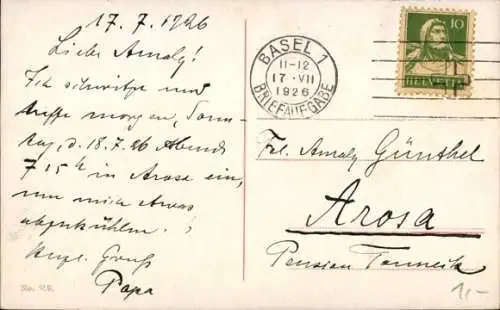 17.7.1926
Liebe Amaly!
Ich schwitze und
treffe morgen, Sonn-
tag, d. 18.7.26 Abends
7 15h in Arosa ein,
um mich etwas
abzukühlen.
Herzl. Gruß
Papa
BASEL 1
11-12
17·VII
1926
BRIEFAUFGABE
10
HELVETIA
Frl. Amaly Günthel
Arosa
Pension Tanneck
1,-